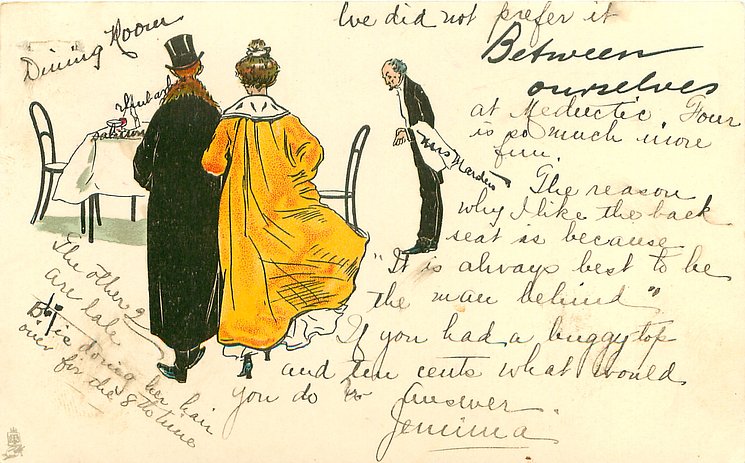 Dining Room
We did not prefer it
Between
ourselves
at Meductic Four
is so much more
fun.
The reason
why I like the back
seat is because
"It is always best to be
the man behind"
If you had a buggy top
and ten cents what would
you do
Answer
Jemima
Mrs Marden
The other 2
are late
is doing her hair
over for the 8th time